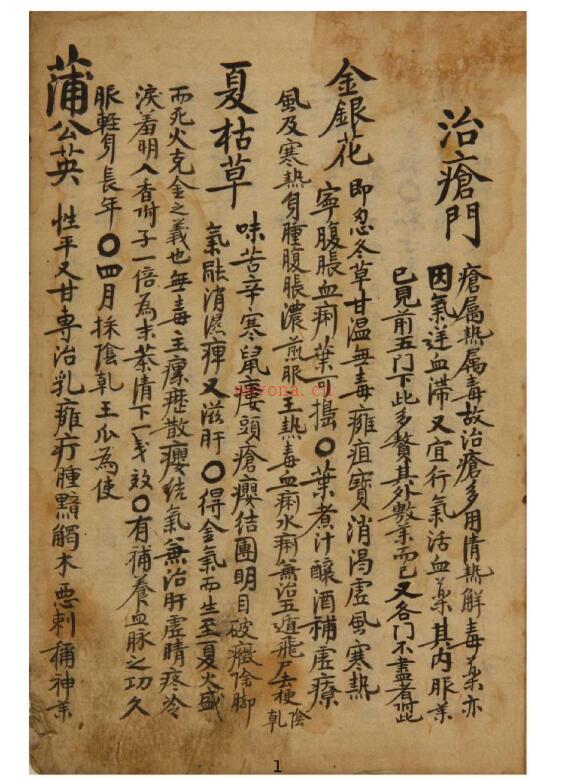 治瘡門
瘡属热属毒故治瘡多用清热解毒葯亦
因氣逆血滯又宜行氣活血葯其内服葯
已見前五門下此多贅其外敷葯而已又各門不盡者附此
金銀花 即忍冬草甘温無毒癰疽寶消渴虚風寒熱
寧腹脹血痢葉可搗〇葉煮汁釀酒補虚療
風及寒热身腫腹脹濃煎服主热毒血痢水痢兼治五遁飛尸去梗陰乾
夏枯草 味苦辛寒鼠瘻頭瘡癭結團明目破癥除脚
氣融消濕痺又滋肝〇得金氣而生至夏火盛
而死火克金之義也無毒主瘰癧散癭結氣兼治肝虚睛疼冷
淚羞明入香附子一倍為末茶清下一戋效〇有補養血脉之功久
服輕身長年〇四月採陰乾王瓜為使
蒲公英 性平又甘專治乳癰疔腫黯觸木惡刺稱神葯
1